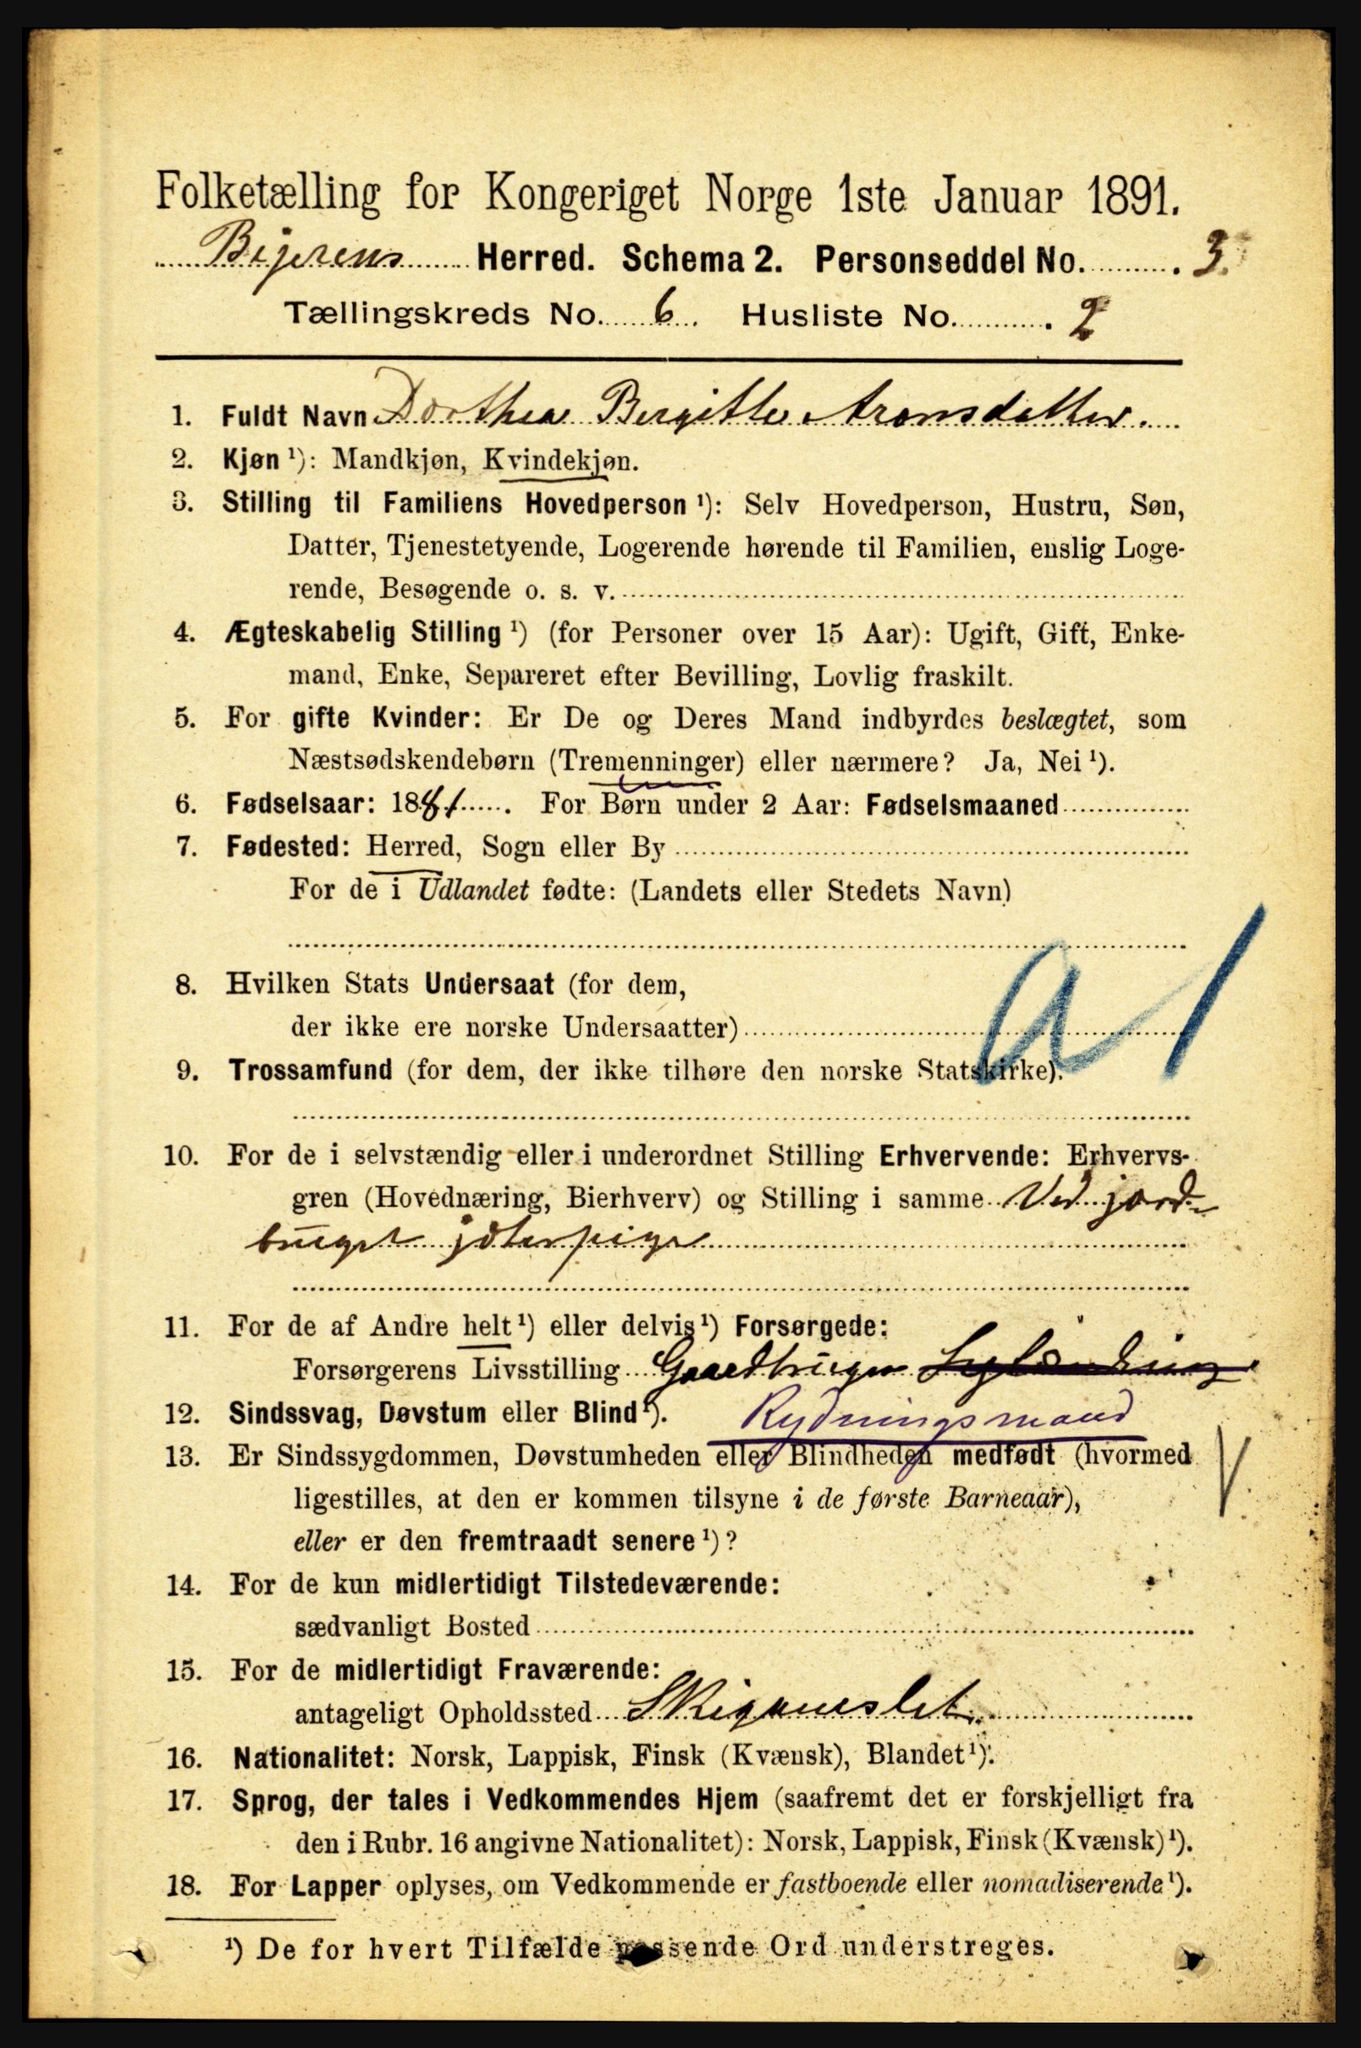 Folketælling for Kongeriget Norge 1ste Januar 1891.
Bejerens Herred. Schema 2. Personseddel No. 3.
Tællingskreds No. 6. Husliste No. 2
1. Fuldt Navn Dorthea Bergitte Aronsdatter.
2. Kjøn ¹): Mandkjøn, Kvindekjøn.
3. Stilling til Familiens Hovedperson ¹): Selv Hovedperson, Hustru, Søn,
Datter, Tjenestetyende, Logerende hørende til Familien, enslig Loge-
rende, Besøgende o. s. v.
4. Ægteskabelig Stilling ¹) (for Personer over 15 Aar): Ugift, Gift, Enke-
mand, Enke, Separeret efter Bevilling, Lovlig fraskilt.
5. For gifte Kvinder: Er De og Deres Mand indbyrdes beslægtet, som
Næstsødskendebørn (Tremenninger) eller nærmere? Ja, Nei ¹).
6. Fødselsaar: 1881. For Børn under 2 Aar: Fødselsmaaned
7. Fødested: Herred, Sogn eller By
For de i Udlandet fødte: (Landets eller Stedets Navn)
a 1
8. Hvilken Stats Undersaat (for dem,
der ikke ere norske Undersaatter)
9. Trossamfund (for dem, der ikke tilhøre den norske Statskirke).
10. For de i selvstændig eller i underordnet Stilling Erhvervende: Erhvervs-
gren (Hovednæring, Bierhverv) og Stilling i samme Ved jord-
bruget jæterpige
11. For de af Andre helt ¹) eller delvis ¹) Forsørgede:
Forsørgerens Livsstilling Gaardbruger
12. Sindssvag, Døvstum eller Blind ¹). Rydningsmand
13. Er Sindssygdommen, Døvstumheden eller Blindheden medfødt (hvormed
ligestilles, at den er kommen tilsyne i de første Barneaar),
eller er den fremtraadt senere ¹)?
14. For de kun midlertidigt Tilstedeværende:
sædvanligt Bosted
15. For de midlertidigt Fraværende:
antageligt Opholdssted
16. Nationalitet: Norsk, Lappisk, Finsk (Kvænsk), Blandet ¹).
17. Sprog, der tales i Vedkommendes Hjem (saafremt det er forskjelligt fra
den i Rubr. 16 angivne Nationalitet): Norsk, Lappisk, Finsk (Kvænsk) ¹).
18. For Lapper oplyses, om Vedkommende er fastboende eller nomadiserende ¹).
¹) De for hvert Tilfælde passende Ord understreges.